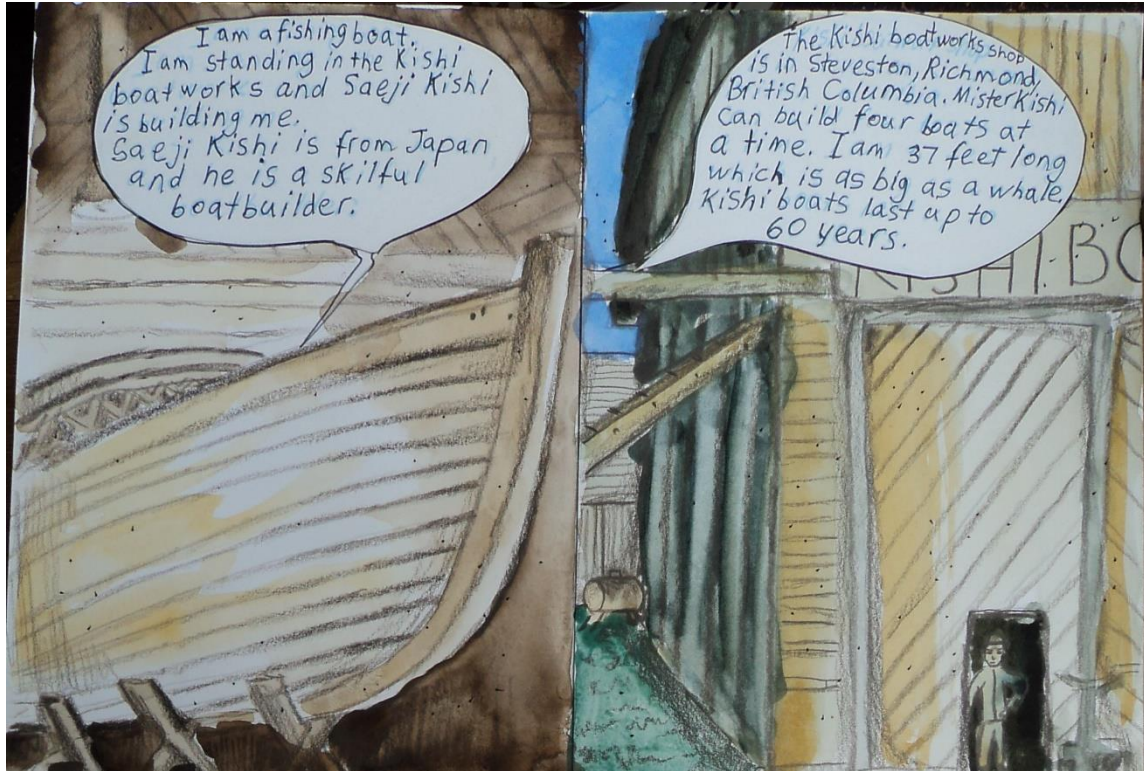 I am a fishing boat.
I am standing in the Kishi
boatworks and Saeji Kishi
is building me.
Saeji Kishi is from Japan
and he is a skilful
boatbuilder.
The Kishi boatworks shop
is in Steveston, Richmond,
British Columbia. Mister Kishi
can build four boats at
a time. I am 37 feet long
which is as big as a whale.
Kishi boats last up to
60 years.
KISHI BO